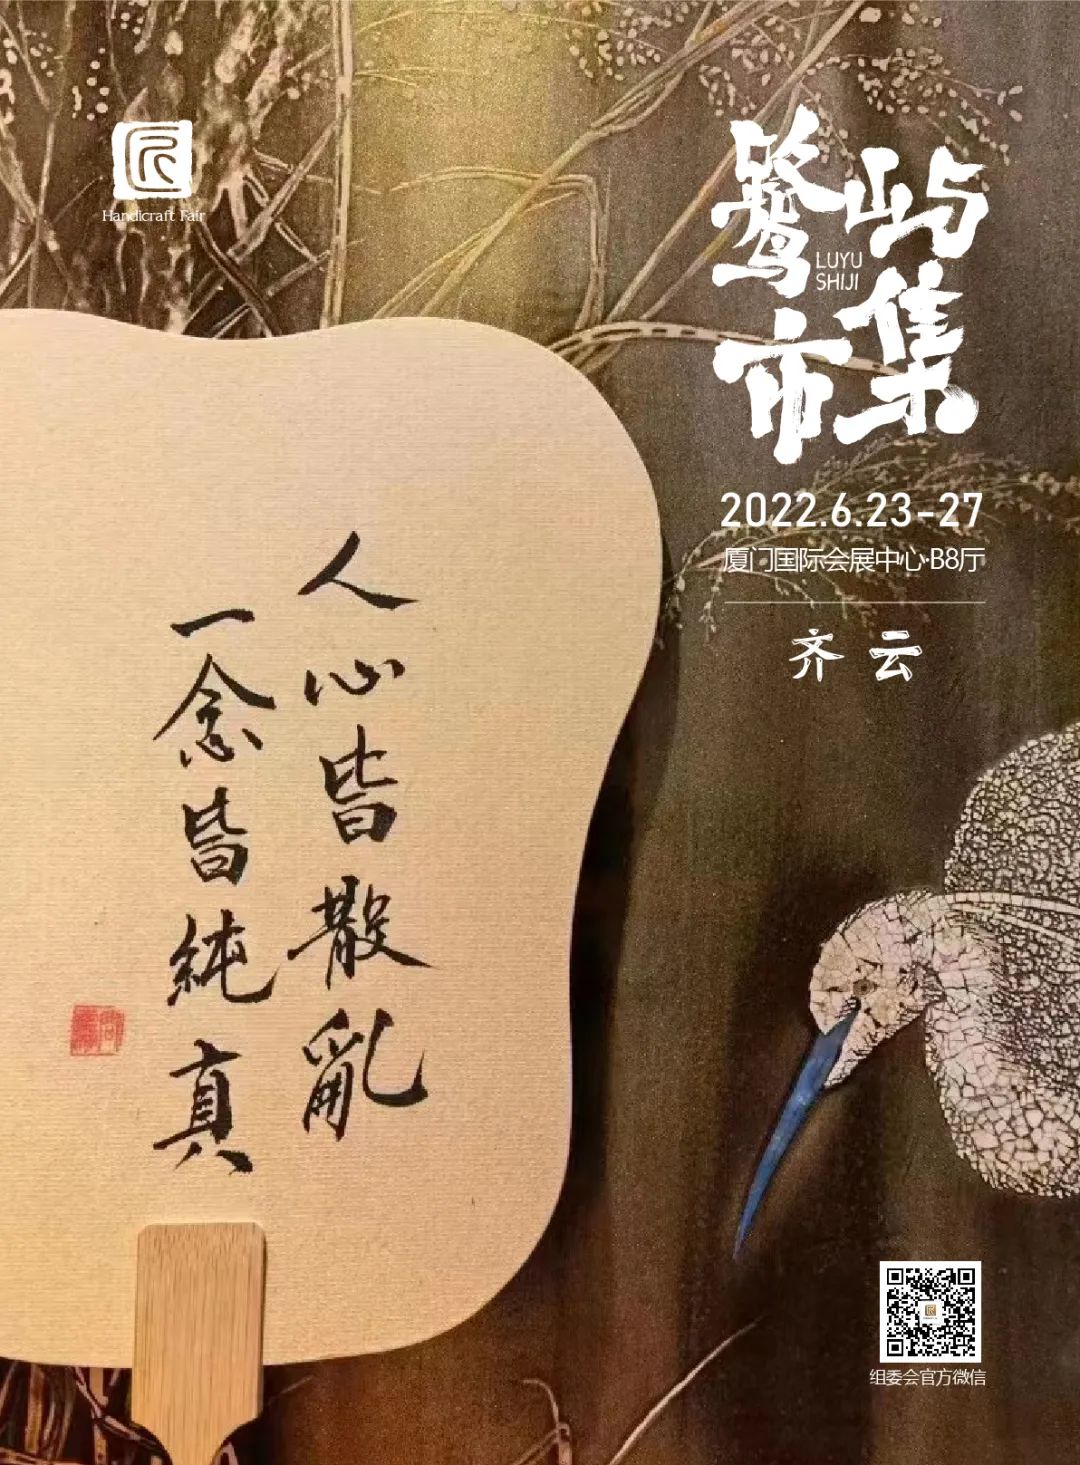 匠
Handicraft Fair
鹭屿
LUYU
SHIJI
市集
2022.6.23-27
厦门国际会展中心·B8厅
齐云
人心皆散亂
一念皆純真
组委会官方微信